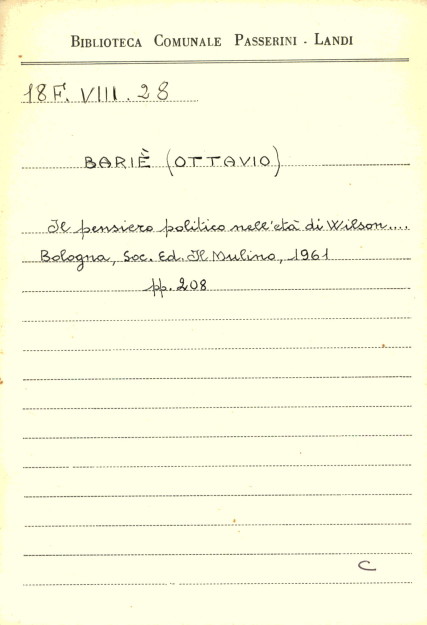 BIBLIOTECA COMUNALE PASSERINI - LANDI
18F. VIII. 28
BARIÈ (OTTAVIO)
Il pensiero politico nell'età di Wilson....
Bologna, Soc. Ed. Il Mulino, 1961
pp. 208
C